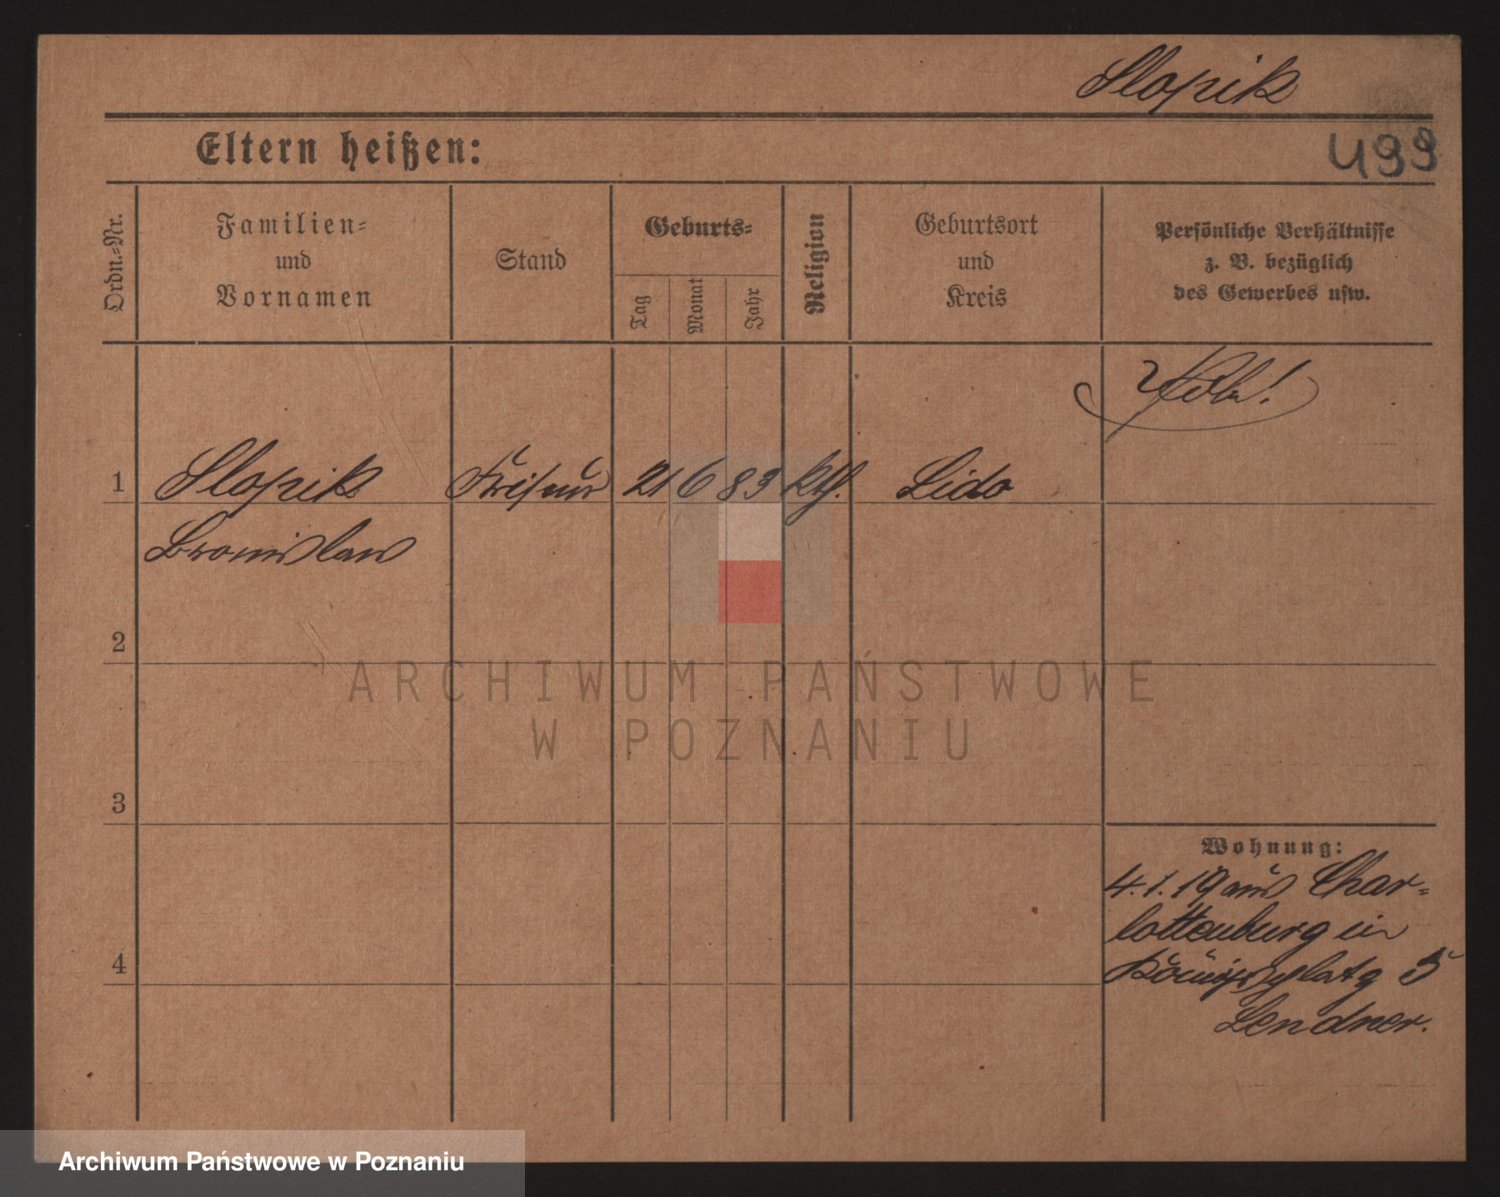 Slopik
Eltern heißen:
499
Ordn.-Nr.
Familien-
und
Vornamen
Stand
Geburts-
Tag
Monat
Jahr
Religion
Geburtsort
und
Kreis
Persönliche Verhältnisse
z. B. bezüglich
des Gewerbes usw.
1 Slopik Friseur 21 6 89 kth. Lido
Bronislaw
2
3
4
Wohnung:
4.1.19 aus Char-
lottenburg in
Königsplatz 5
Lendner.
ARCHIWUM PAŃSTWOWE
W POZNANIU
Archiwum Państwowe w Poznaniu